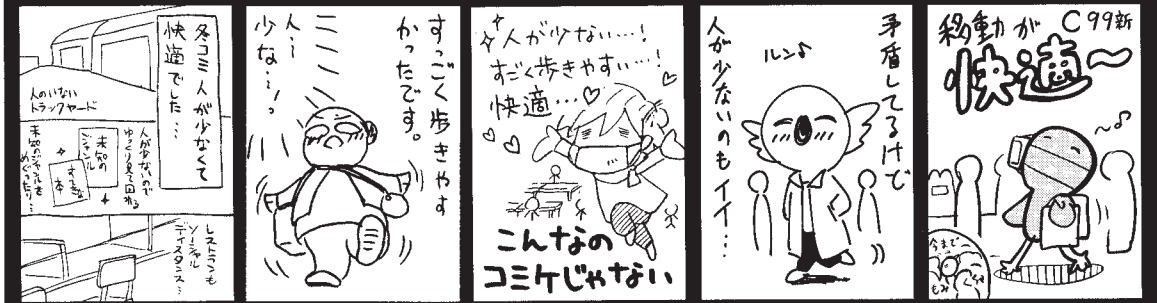 C99新
移動が
快適〜
〜♪
今まで
もみ
矛盾してるけど
人が少ないのもイイ…
ルン♪
人が少ない…!
すごく歩きやすい…!
快適…♡
こんなの
コミケじゃない
すっごく歩きやす
かったです。
人〜
少な…!
冬コミ人が少なくて
快適でした…
人のいない
トラックヤード
人が少ないので
ゆっくり見て回れる
未知の
ジャンル
すてきな
本
未知のジャンルを
めぐったり…
レストランも
ソーシャル
ディスタンス…